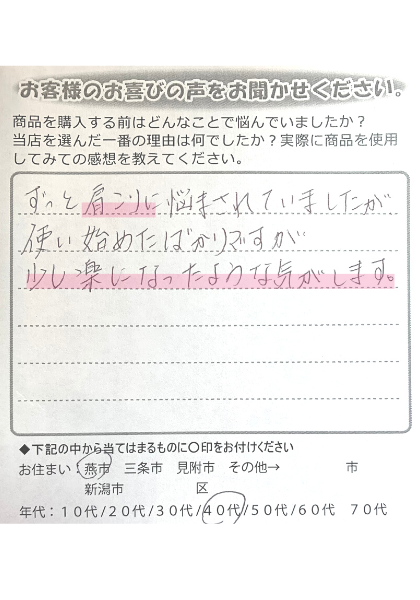 お客様のお喜びの声をお聞かせください。
商品を購入する前はどんなことで悩んでいましたか？
当店を選んだ一番の理由は何でしたか？実際に商品を使用
してみての感想を教えてください。
ずっと肩こりに悩まされていましたが
使い始めたばかりですが
少し楽になったような気がします。
◆下記の中から当てはまるものに〇印をお付けください
お住まい：燕市　三条市　見附市　その他→　　　　市
新潟市　　　　　区
年代：１０代/２０代/３０代/４０代/５０代/６０代　７０代